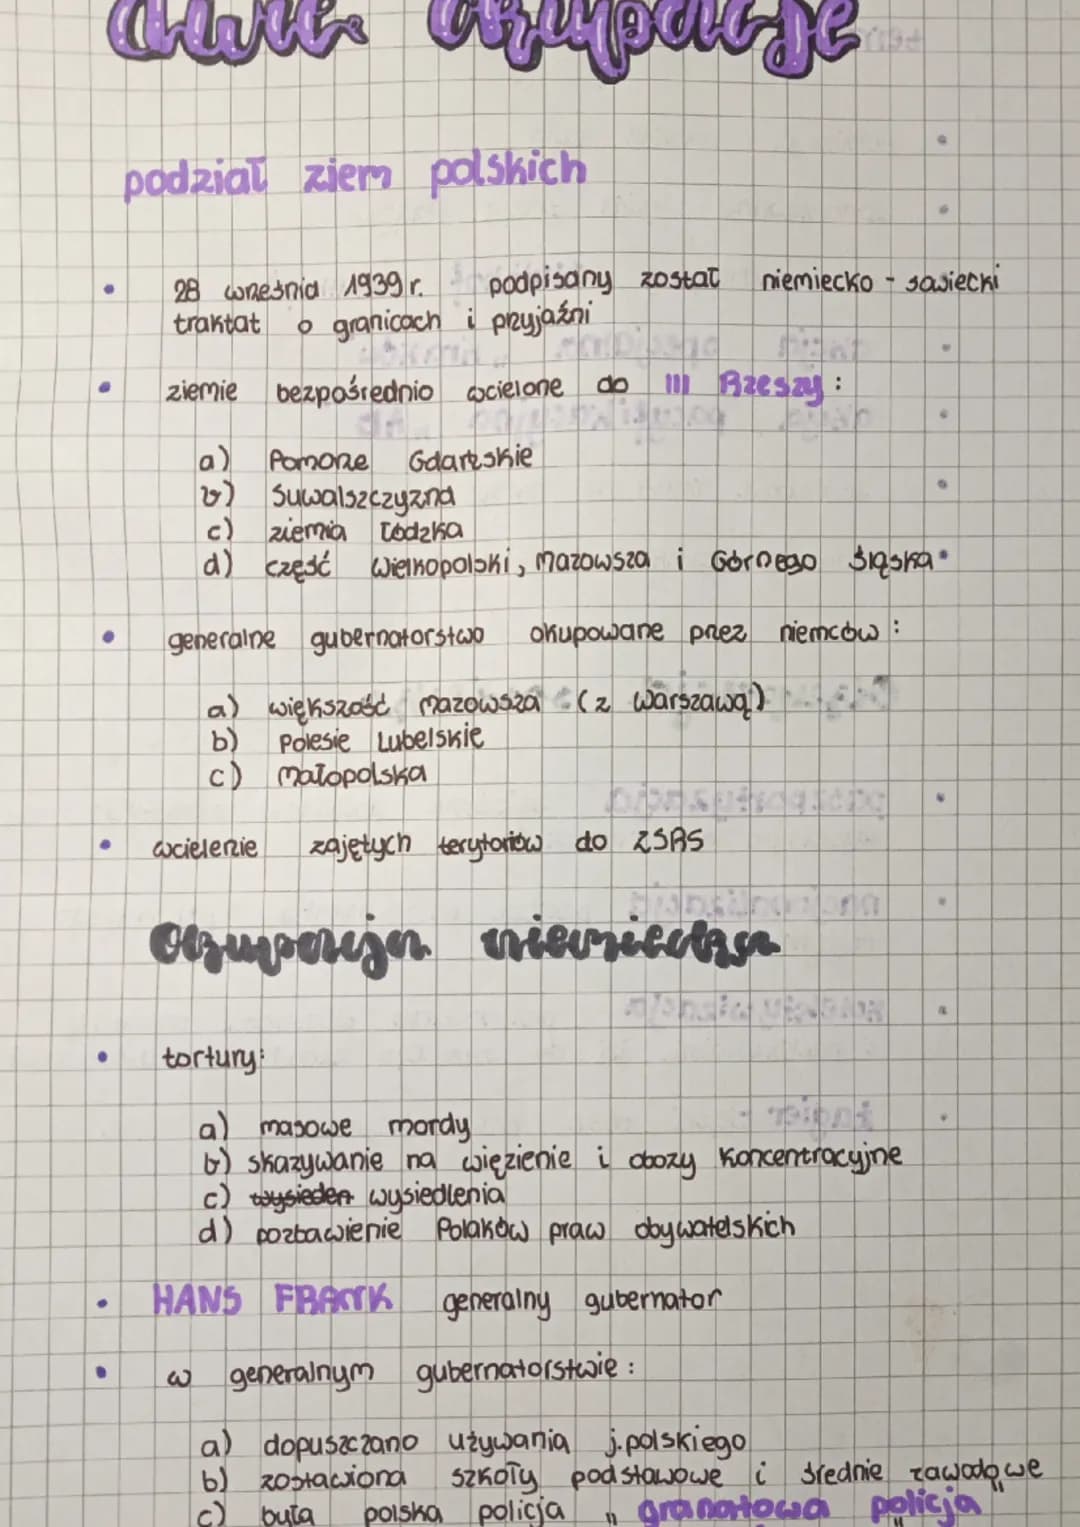 dwie okupacje
podział ziem polskich
• 28 września 1939 r. podpisany został niemiecko - sowiecki
traktat o granicach i przyjaźni
• ziemie bezpośrednio wcielone do III Rzeszy:
a) Pomorze Gdańskie
b) Suwalszczyzna
c) ziemia łódzka
d) część Wielkopolski, Mazowsza i Górnego Śląska
• generalne gubernatorstwo okupowane przez niemców:
a) większość Mazowsza (z Warszawą)
b) Polesie Lubelskie
c) Małopolska
• wcielenie zajętych terytoriów do ZSRS
Okupacja niemiecka
• tortury:
a) masowe mordy
b) skazywanie na więzienie i obozy koncentracyjne
c) wysieden wysiedlenia
d) pozbawienie Polaków praw obywatelskich
• HANS FRANK generalny gubernator
• w generalnym gubernatorstwie:
a) dopuszczano używania j.polskiego
b) zostawiona szkoły podstawowe i średnie zawodowe
c) była polska policja "granatowa policja"